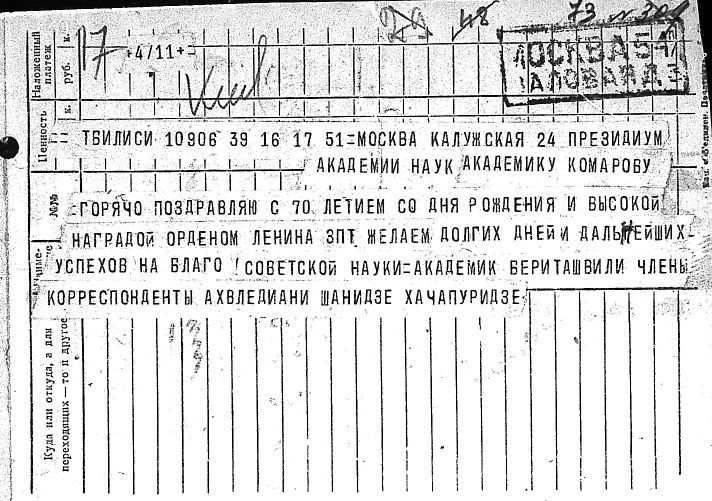 73 № 301
48
17
+4/11+
МОСКВА 54
Наложенный
платеж
руб. к.
Ценность
к.
№№
== ТБИЛИСИ 10906 39 16 17 51=МОСКВА КАЛУЖСКАЯ 24 ПРЕЗИДИУМ
АКАДЕМИИ НАУК АКАДЕМИКУ КОМАРОВУ
=ГОРЯЧО ПОЗДРАВЛЯЮ С 70 ЛЕТИЕМ СО ДНЯ РОЖДЕНИЯ И ВЫСОКОЙ
НАГРАДОЙ ОРДЕНОМ ЛЕНИНА ЗПТ ЖЕЛАЕМ ДОЛГИХ ДНЕЙ И ДАЛЬНЕЙШИХ
УСПЕХОВ НА БЛАГО ! СОВЕТСКОЙ НАУКИ=АКАДЕМИК БЕРИТАШВИЛИ ЧЛЕНЫ
КОРРЕСПОНДЕНТЫ АХВЛЕДИАНИ ШАНИДЗЕ ХАЧАПУРИДЗЕ
Куда или откуда, а для
переходящих — то и другое